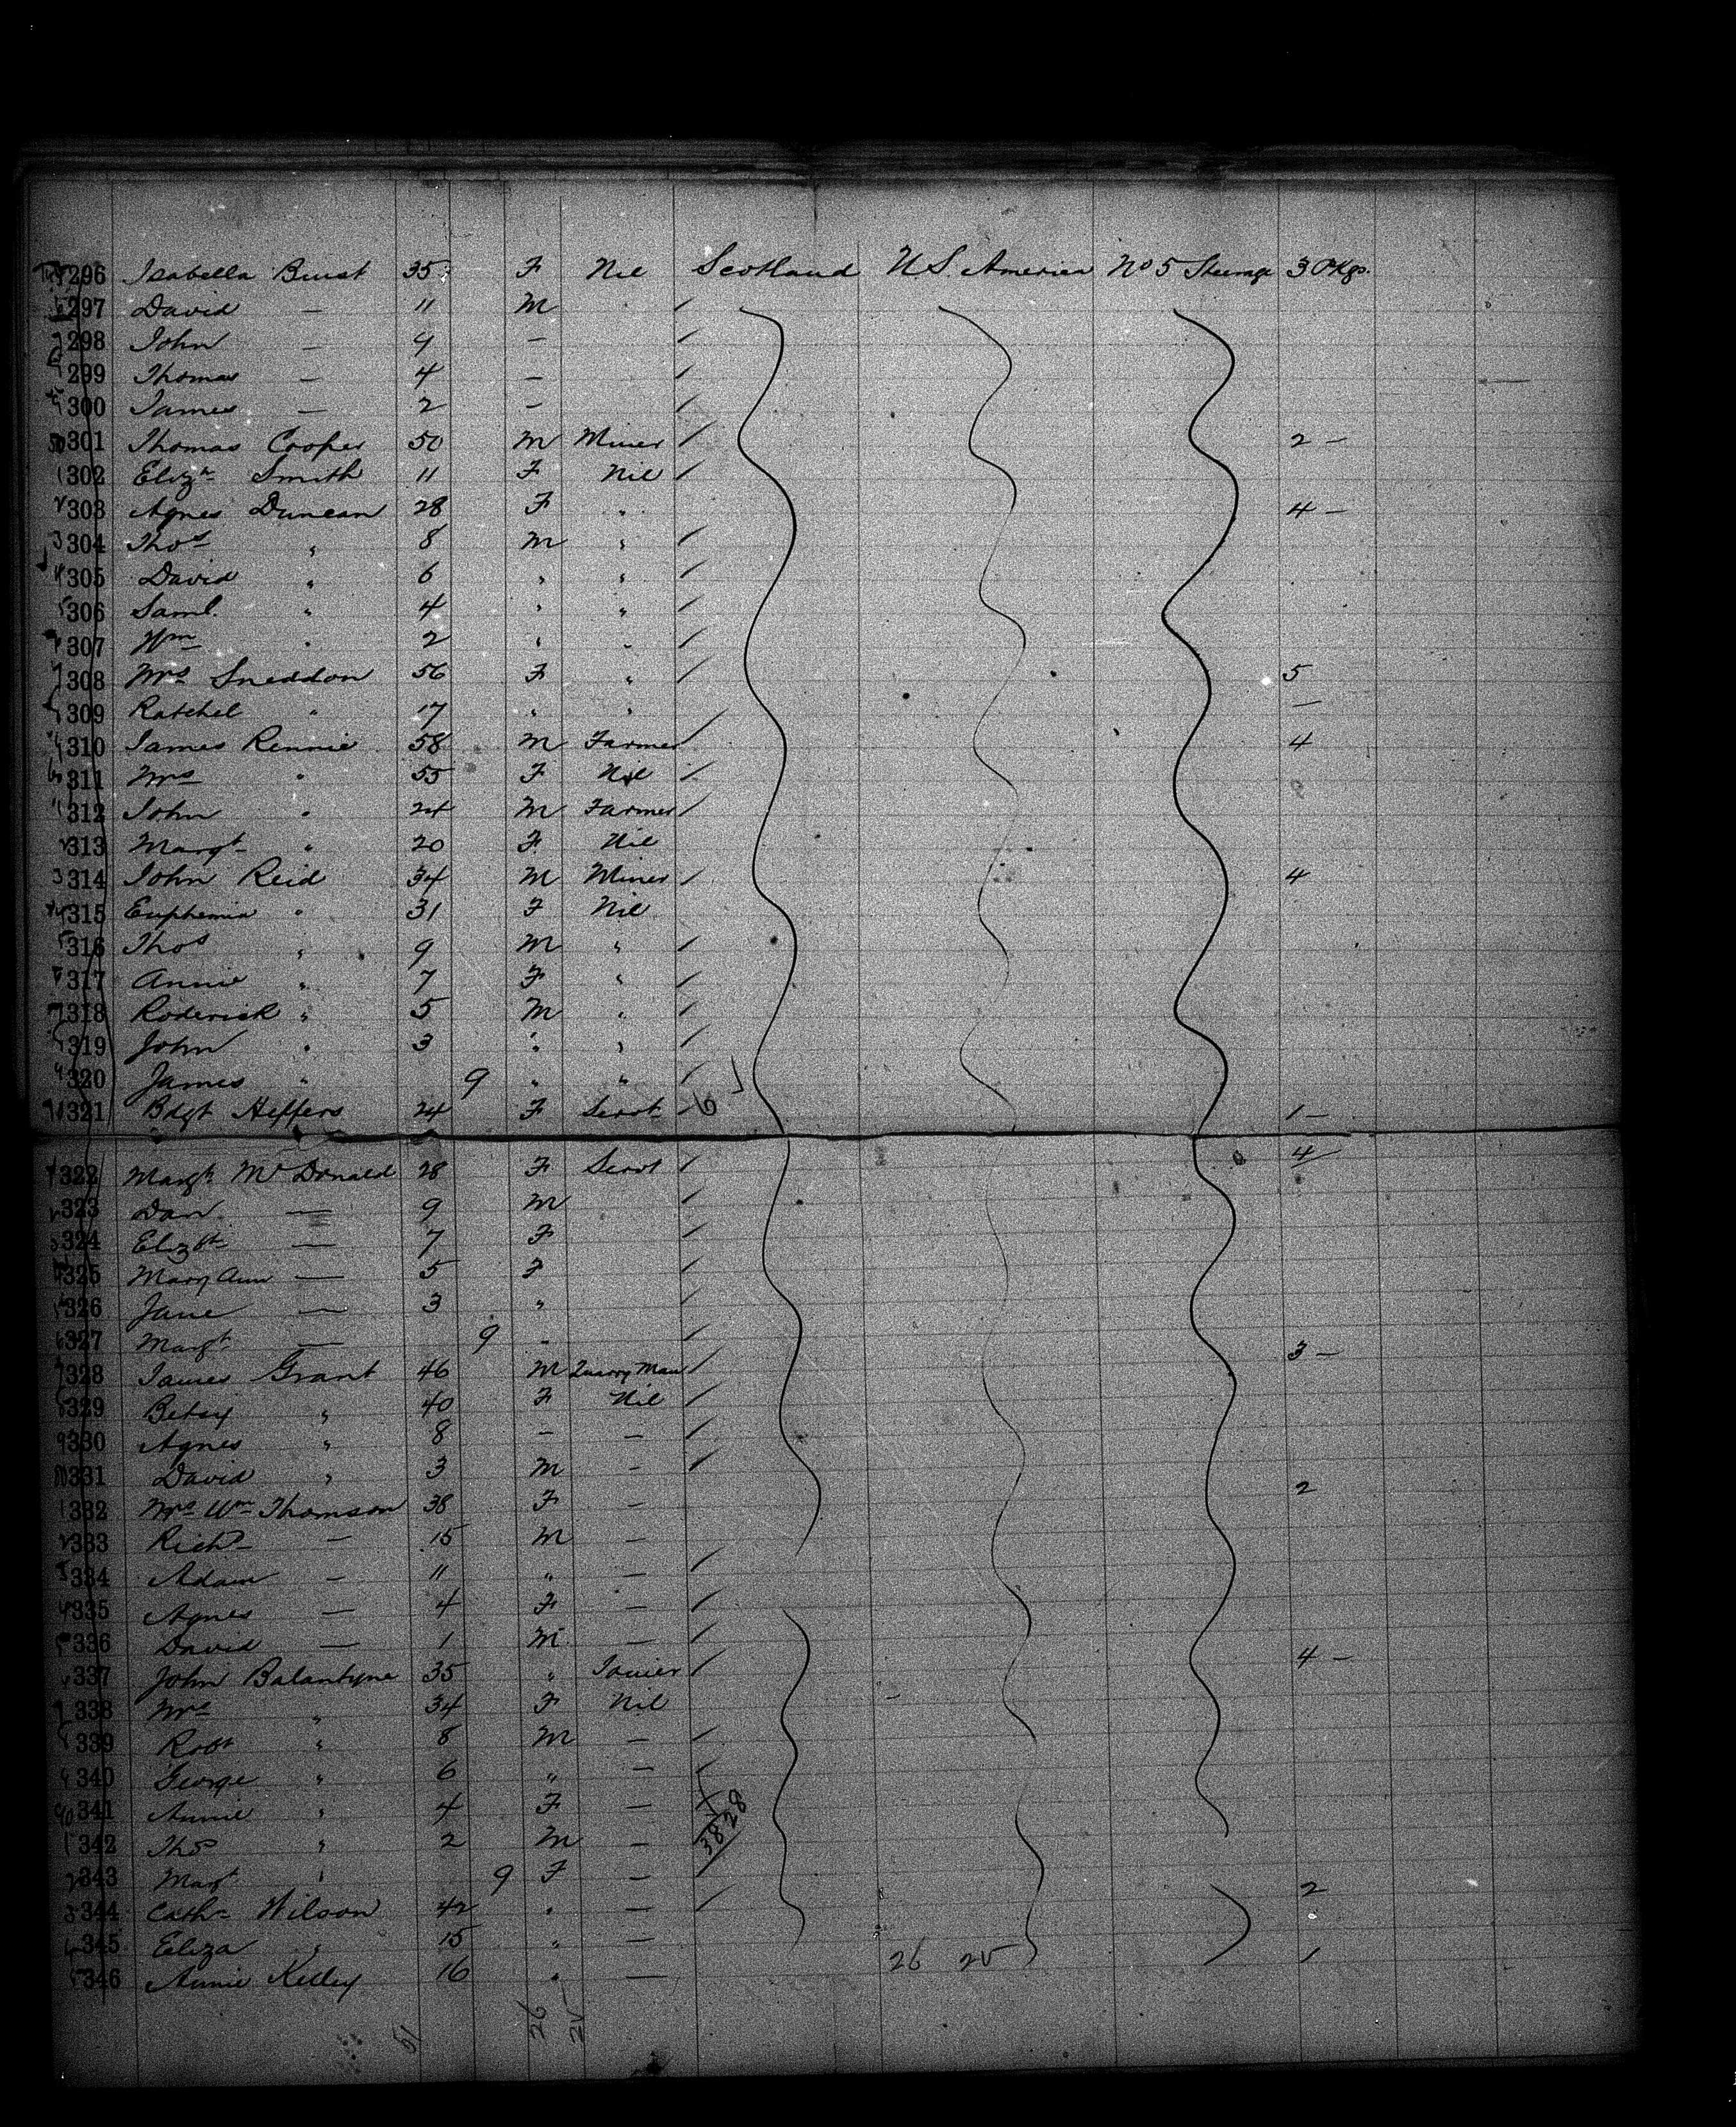 296 Isabella Buist 35 F Nil Scotland U.S. America No 5 Steerage 3 Pkgs.
297 David — 11 M
298 John — 9 —
299 Thomas — 4 —
300 James — 2 —
301 Thomas Cooper 50 M Miner 2 —
302 Elizth Smith 11 F Nil
303 Agnes Duncan 28 F " 4 —
304 Thos " 8 M "
305 David " 6 " "
306 Saml. " 4 " "
307 Wm " 2 " "
308 Mrs Sneddon 56 F " 5
309 Ratchel " 17 " " —
310 James Rennie 58 M Farmer 4
311 Mrs " 55 F Nil
312 John " 24 M Farmer
313 Margt " 20 F Nil
314 John Reid 34 M Miner 4
315 Euphemia " 31 F Nil
316 Thos " 9 M "
317 Annie " 7 F "
318 Roderick " 5 M "
319 John " 3 " "
320 James " 9 " "
321 Bdgt Heffers 24 F Servt 6 1 —
322 Margt McDonald 28 F Servt 4
323 Dan — 9 M
324 Elizbth — 7 F
325 Mary Ann — 5 F
326 Jane — 3 "
327 Margt — 9 -
328 James Grant 46 M Quarry Man 3 —
329 Betsy " 40 F Nil
330 Agnes " 8 — —
331 David " 3 M —
332 Mrs Wm Thomson 38 F — 2
333 Richd — 15 M —
334 Adam — 11 " —
335 Agnes — 4 F —
336 David — 1 M —
337 John Balantyne 35 " Joiner 4 —
338 Mrs " 34 F Nil
339 Robt " 8 M —
340 George " 6 " —
341 Annie " 4 F — 28
342 Thos " 2 M — 38
343 Margt " 9 F —
344 Cath Wilson 42 " — 2
345 Eliza " 15 " —
346 Annie Kelley 16 " — 26 25 1
51 26 25